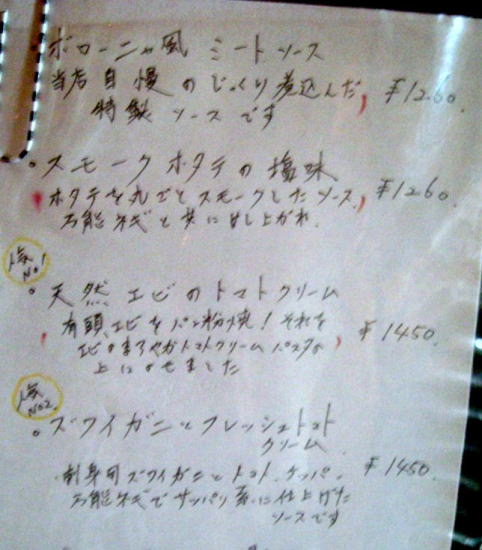 ・ボローニャ風 ミートソース
当店自慢のじっくり煮込んだ、 ¥1260.
特製ソースです
・スモークホタテの塩味
ホタテを丸ごとスモークしたソース、 ¥1260.
万能ネギと共に召し上がれ.
人気No1
・天然エビのトマトクリーム
有頭エビをパン粉焼!それを ¥1450.
エビのまろやかトマトクリームパスタの
上にのせました
人気No2.
・ズワイガニとフレッシュトマト
クリーム
刺身用ズワイガニとトマト、ケッパー、 ¥1450.
万能ネギでサッパリ系に仕上げた
ソースです